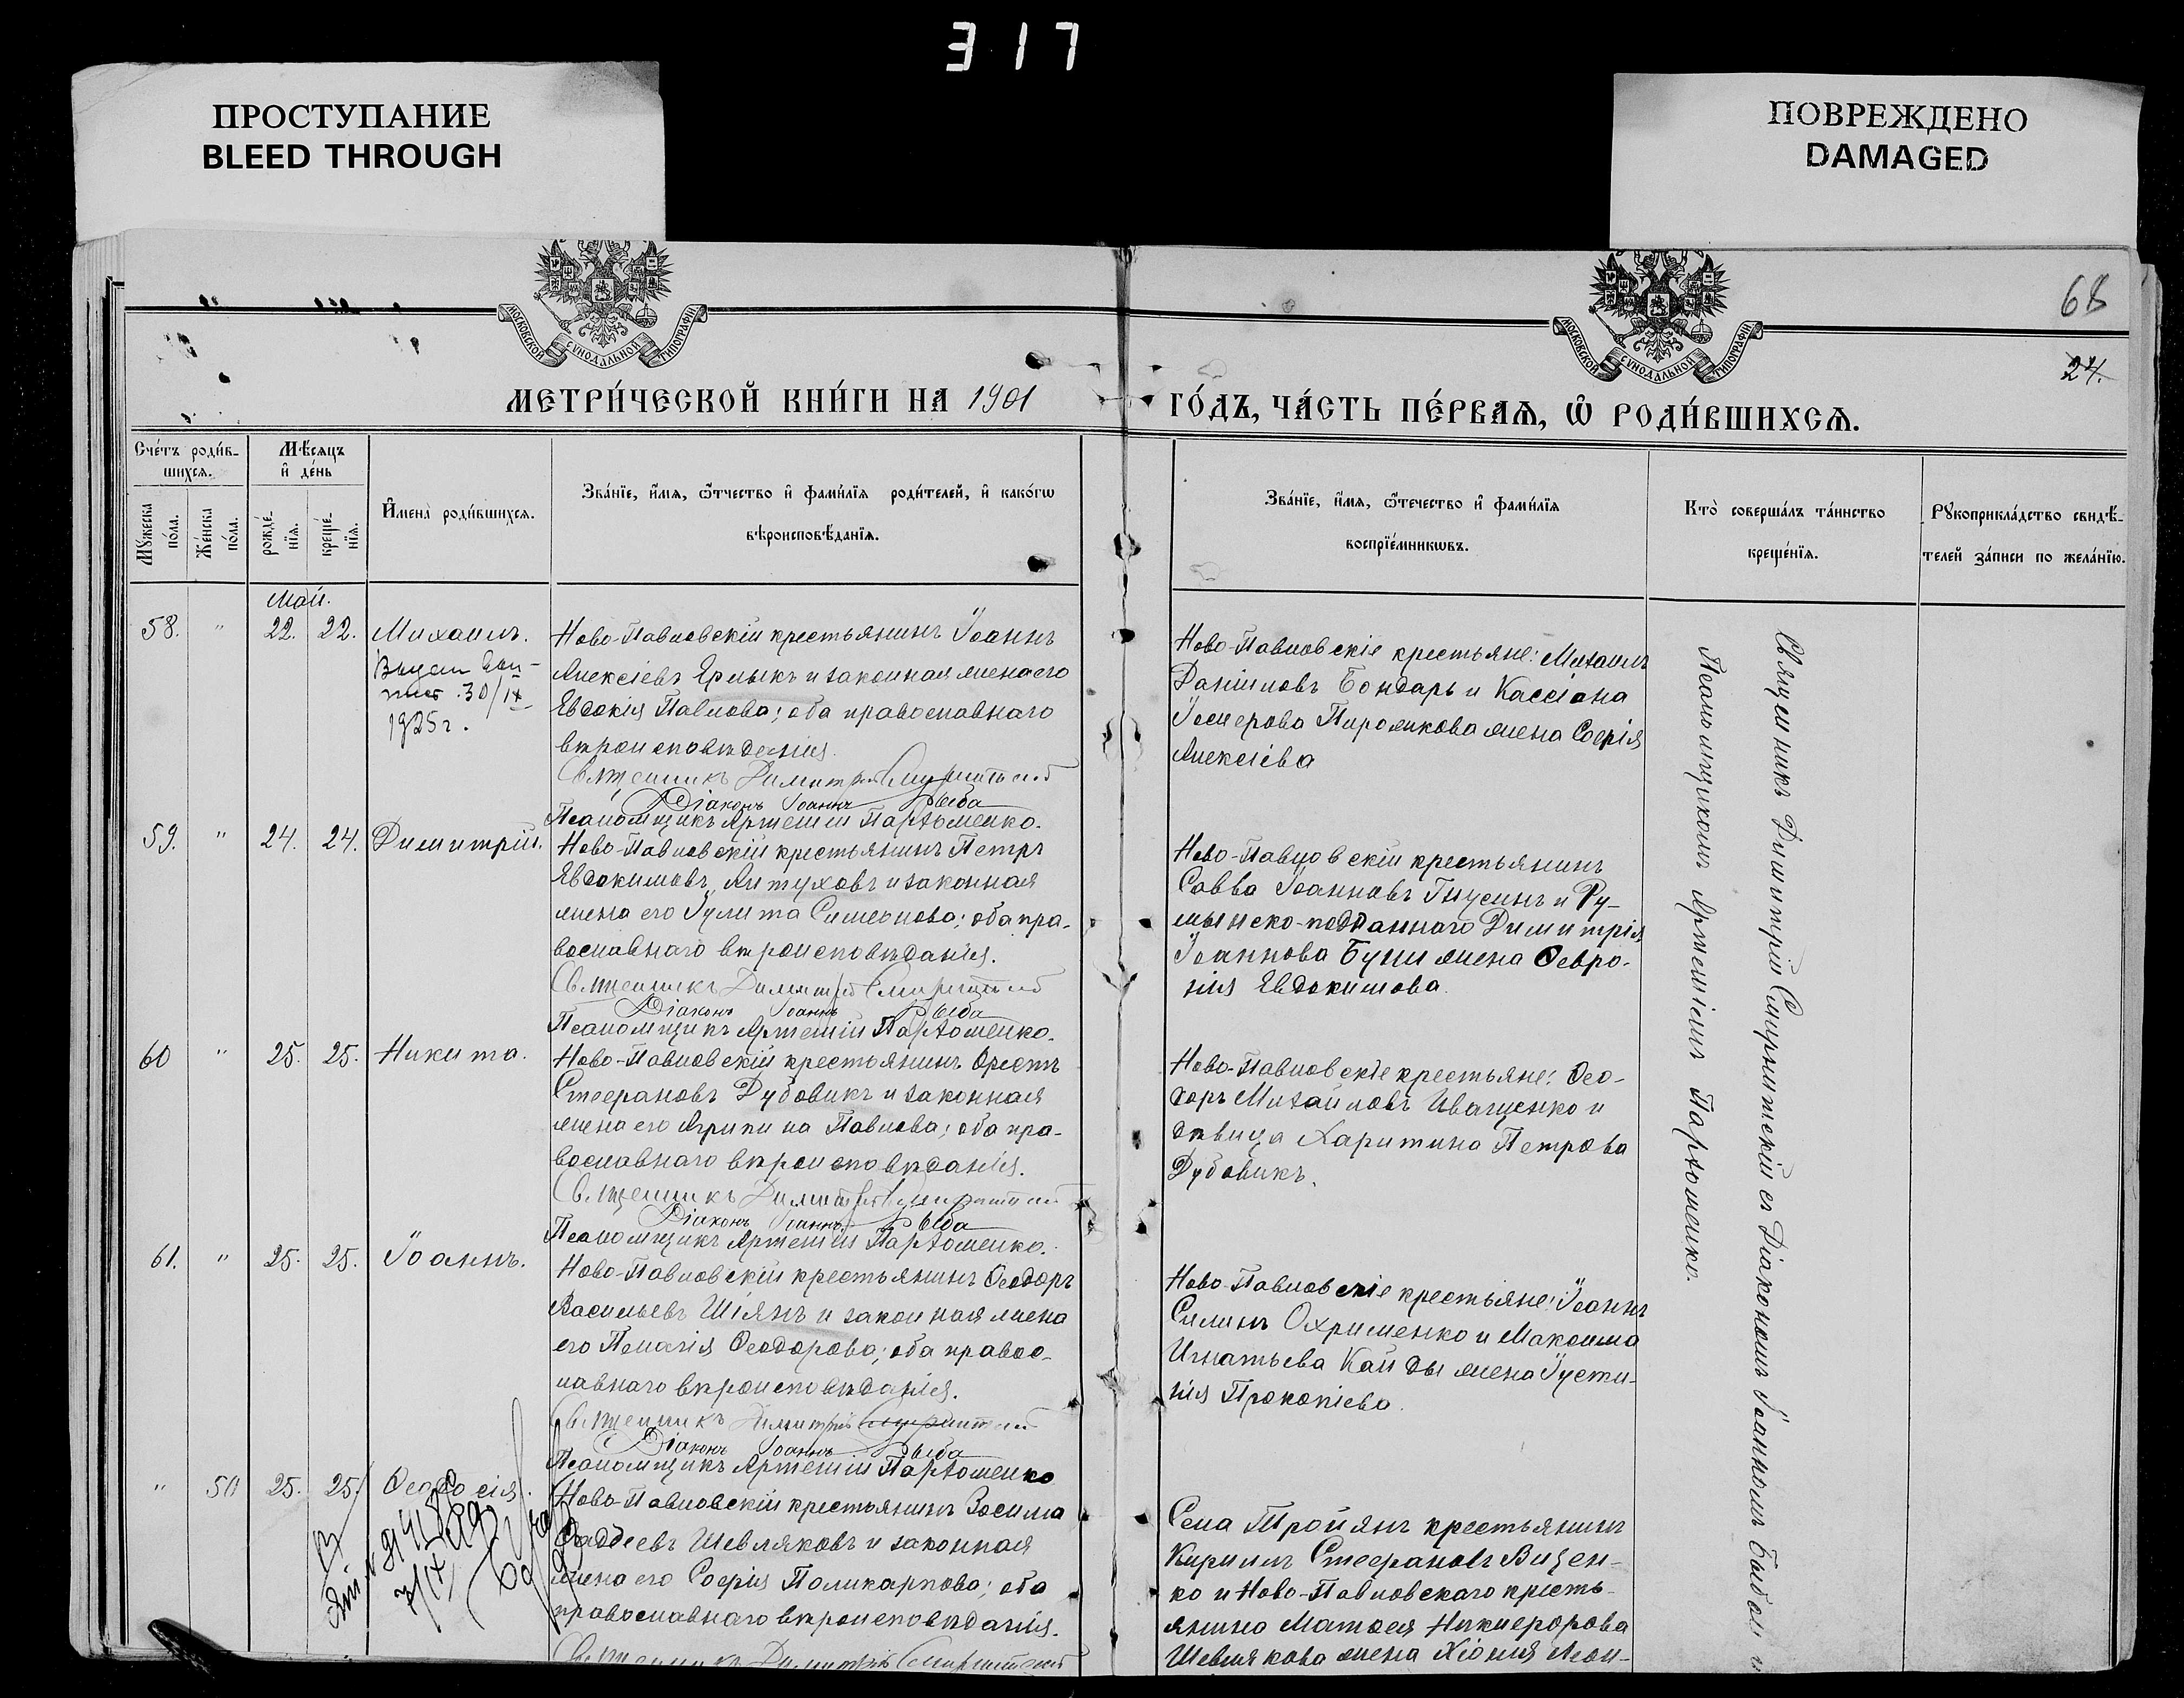 317
ПРОСТУПАНИЕ
BLEED THROUGH
ПОВРЕЖДЕНО
DAMAGED
МОСКОВСКОЙ СѴНОДАЛЬНОЙ ТИПОГРАФІИ
МОСКОВСКОЙ СѴНОДАЛЬНОЙ ТИПОГРАФІИ
68
24.
МЕТРИ́ЧЕСКОЙ КНИ́ГИ НА 1901
ГО́ДЪ, ЧА́СТЬ ПЕ́РВАѦ, Ѽ РОДИ́ВШИХСѦ.
Сче́тъ роди́в-
шихсѧ.
Мѣ́сѧцъ
и҆ де́нь
Мꙋ́жеска
по́ла.
Же́нска
по́ла.
рожде́-
нїѧ.
креще́-
нїѧ.
И҆мена̀ роди́вшихсѧ.
Зва́нїе, и҆́мѧ, ѻ҆́тчество и҆ фами́лїѧ роди́телей, и҆ како́гѡ
вѣроисповѣ́данїѧ.
Зва́нїе, и҆́мѧ, ѻ҆́течество и҆ фами́лїѧ
воспрїе́мникѡвъ.
Кто̀ соверша́лъ та́инство
креще́нїѧ.
Рꙋкоприкла́дство свидѣ́-
телей за́писи по жела́нїю.
Май.
58. " 22. 22. Михаилъ.
30/IX
1925 г.
Ново-Павловскій крестьянинъ Іоаннъ
Алексіевъ Ярлыкъ и законная жена его
Евдокія Павлова; оба православнаго
вѣроисповѣданія.
Священникъ Димитрій Смирнитскій
Діаконъ Іоаннъ Рыба
Псаломщикъ Артемій Пархоменко.
Ново-Павловскіе крестьяне: Михаилъ
Даніиловъ Бондарь и Кассіана
Пирожкова жена Софія
Алексіева
59. " 24. 24. Димитрій.
Ново-Павловскій крестьянинъ Петръ
Евдокимовъ Алтуховъ и законная
жена его Іулита Симеонова; оба пра-
вославнаго вѣроисповѣданія.
Священникъ Димитрій Смирнитскій
Діаконъ Іоаннъ Рыба
Псаломщикъ Артемій Пархоменко.
Ново-Павловскій крестьянинъ
Савва Іоанновъ Гнусинъ и Ру-
мынско-подданнаго Димитрія
Іоаннова Буни жена Ѳевро-
нія Евдокимова.
60 " 25. 25. Никита.
Ново-Павловскій крестьянинъ Орестъ
Стефановъ Дубовикъ и законная
жена его Агрипина Павлова; оба пра-
вославнаго вѣроисповѣданія.
Священникъ Димитрій Смирнитскій
Діаконъ Іоаннъ Рыба
Псаломщикъ Артемій Пархоменко.
Ново-Павловскіе крестьяне: Ѳео-
доръ Михайловъ Иващенко и
дѣвица Харитина Петрова
Дубовикъ.
61. " 25. 25. Іоаннъ.
Ново-Павловскій крестьянинъ Ѳеодоръ
Васильевъ Шіянъ и законная жена
его Пелагія Ѳеодорова; оба правос-
лавнаго вѣроисповѣданія.
Священникъ Димитрій Смирнитскій
Діаконъ Іоаннъ Рыба
Псаломщикъ Артемій Пархоменко
Ново-Павловскіе крестьяне: Іоаннъ
Силинъ Охрименко и Максима
Игнатьева Кайды жена Іусти-
нія Прокопіева.
" 50 25. 25. Ѳеодосія.
7/IX
Ново-Павловскій крестьянинъ Зосима
Ѳаддеевъ Шевляковъ и законная
жена его Софія Поликарпова; оба
православнаго вѣроисповѣданія.
Священникъ Димитрій Смирнитскій
Села Тройянъ крестьянинъ
Кириллъ Стефановъ Вицен-
ко и Ново-Павловскаго кресть-
янина Матѳея Никифорова
Шевлякова жена Хіонія Леон-
Священникъ Димитрій Смирнитскій съ Діакономъ Іоанномъ Рыбой и
Псаломщикомъ Артеміемъ Пархоменко.